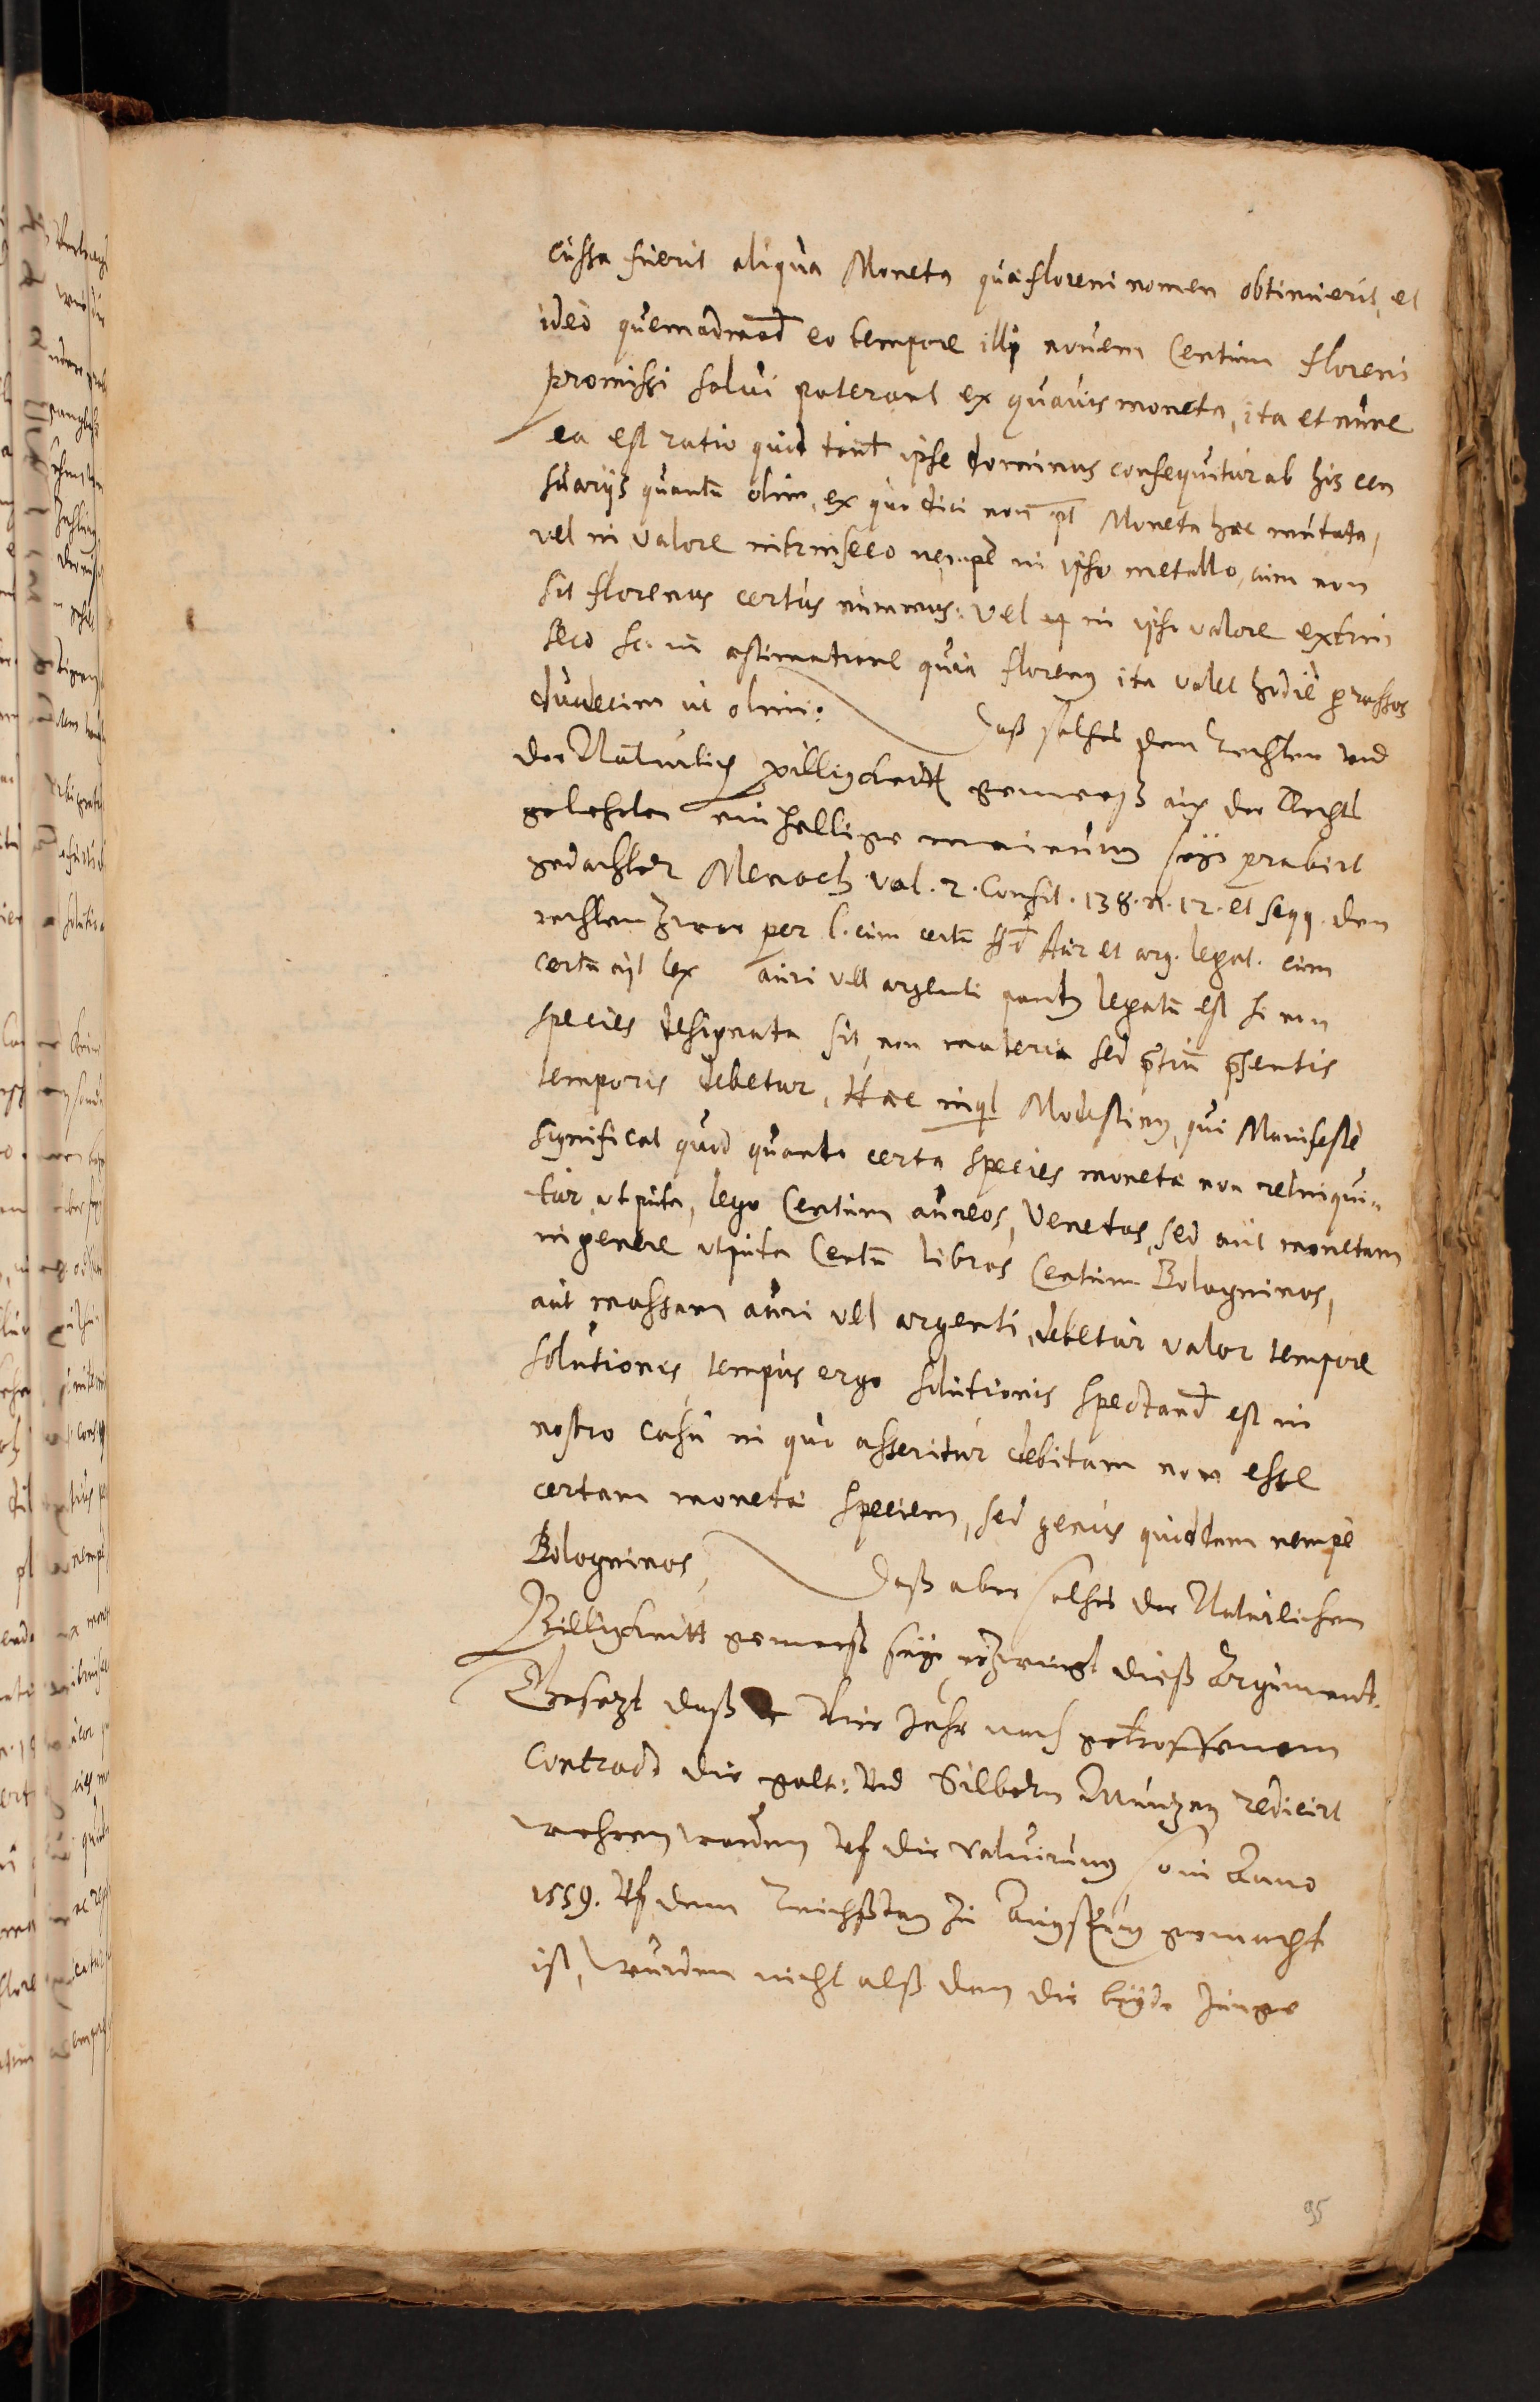 cussa fuerit aliqua Moneta quæ floreni nomen obtinuerit, et
ideò quemadmod eo tempore illi novem Centum floreni
promissi solui poterant ex quavis moneta, ita et nunc
ea est ratio quid tant ipse dominus consequitur ab his cen
suarijs quantũ olim, ex quo dici non pt Moneta hæc mutata,
vel in valore intrinseco nempe in ipso metallo, cum non
sit florenus certus nummus: Vel in ipso valore extrin
seco sc. in æstimatione quia floreny ita valet hodiè grossos
duodecim ut olim:
Daß solches dem Rechten vnd
der Natürlich pilligcheitt gemeeß aus der Rechts
gelehrten ein hellige meinung seÿe probirt
gedachter Menoch vol. 2. Consil. 138. n. 12. et seqq. den
rechten Zwar per l. cum certũ ff d Aur et arg. legat. cum
certũ ait lex auri vel argenti pondg legatũ est si non
species designata sit, non materia sed ptiũ psentis
temporis debetur, Hæc inqt Modestiny, qui Manifestè
significat quod quando certa species monetæ non relinqui-
tur, utputa, lego Centum aureos, Venetos, sed aut monetam
in genere utputa Centũ libras Centum Bologninos,
aut massam auri vel argenti, debetur valor tempore
solutionis, tempus ergo solutionis spectand est in
nostro casu in quo asseritur debitam non esse
certam monetæ speciem, sed genus quoddam nempè
Bologninos,
Daß aber solches der Natürlichen
Billigcheitt gemeeß seÿe erzwingt dieß Argument.
Gesezt daß Vier Jahr nach getroffenem
Contract die golt: Vnd Silbern Müntzen redicirt
wehren worden Vf die valuirung so in Anno
1559. Vf dem Reichßtag Zu Augspurg gemacht
ist, wurden nicht alß dan die beÿde Junge
95